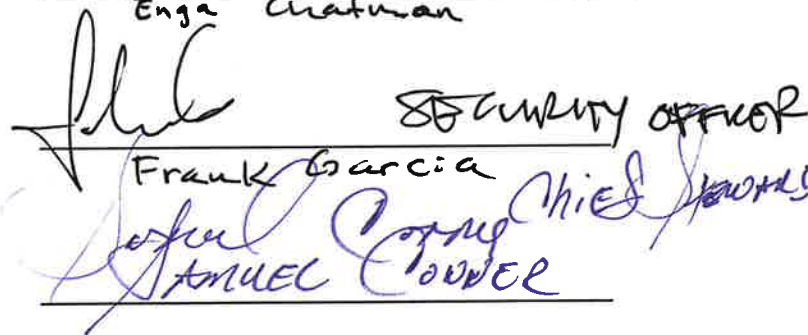 Enga Chatman
SECURITY OFFICER
Frank Garcia
Chief Steward
SAMUEL CONNER